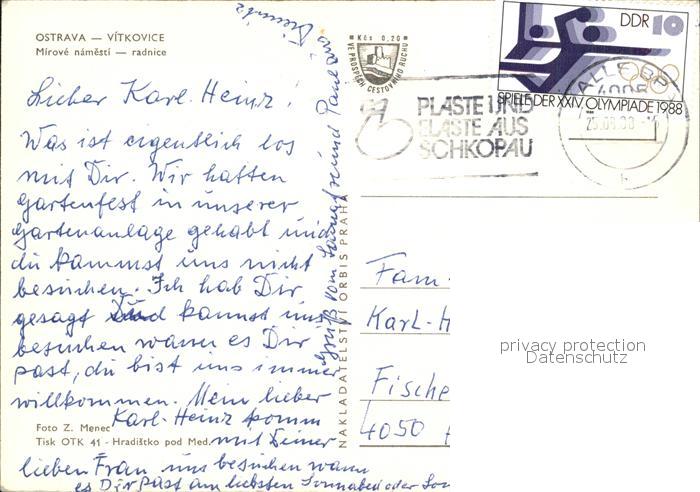 OSTRAVA — VÍTKOVICE
Mírové náměstí — radnice
Kčs 0,20
VE PROSPĚCH CESTOVNÍHO RUCHU
DDR 10
SPIELE DER XXIV. OLYMPIADE 1988
PLASTE UND
ELASTE AUS
SCHKOPAU
Lieber Karl-Heinz!
Was ist eigentlich los
mit Dir. Wir hatten
Gartenfest in unserer
Gartenanlage gehabt und
du kammst uns nicht
besuchen. Ich hab Dir
gesagt kannst uns
besuchen wann es Dir
past, du bist uns immer
willkommen. Mein lieber
Karl-Heinz komm
mit Deiner
lieben Frau uns besuchen wann
es Dir past am liebsten Sonnabend oder Son
Gruß vom
Foto Z. Menec
Tisk OTK 41 - Hradištko pod Med.
NAKLADATELSTVÍ ORBIS PRAHA
Fam.
Karl-H
Fische
4050
privacy protection
Datenschutz